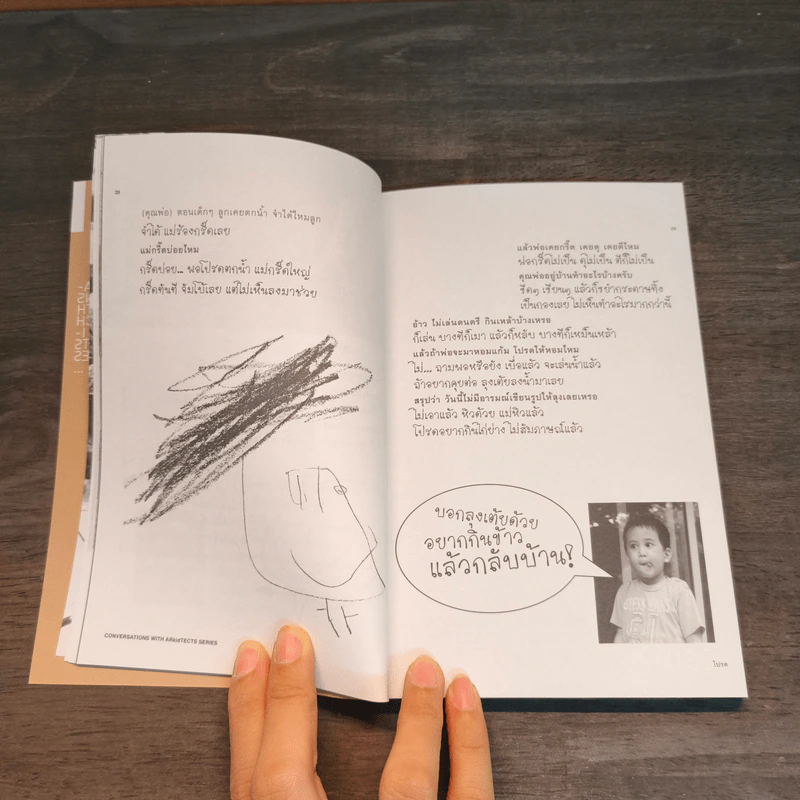 28
(คุณพ่อ) ตอนเด็กๆ ลูกเคยตกน้ำ จำได้ไหมลูก
จำได้ แม่ร้องกรี๊ดเลย
แม่กรี๊ดบ่อยไหม
กรี๊ดบ่อย... พอโปรดตกน้ำ แม่กรี๊ดใหญ่
กรี๊ดทันที จัมโบ้เลย แต่ไม่เห็นลงมาช่วย
CONVERSATIONS WITH ARkidTECTS SERIES
แล้วพ่อเคยกรี๊ด เคยดุ เคยตีไหม
พ่อกรี๊ดไม่เป็น ดุไม่เป็น ตีก็ไม่เป็น
คุณพ่ออยู่บ้านทำอะไรบ้างครับ
ขีดๆ เขียนๆ แล้วก็ขยำกระดาษทิ้ง
เป็นกองเลย ไม่เห็นทำอะไรมากกว่านี้
อ้าว ไม่เล่นดนตรี กินเหล้าบ้างเหรอ
ก็เล่น บางทีก็เมา แล้วก็หลับ บางทีก็เหม็นเหล้า
แล้วถ้าพ่อจะมาหอมแก้ม โปรดให้หอมไหม
ไม่... ถามพอหรือยัง เบื่อแล้ว จะเล่นน้ำแล้ว
ถ้าอยากคุยต่อ ลุงเต้ยลงน้ำมาเลย
สรุปว่า วันนี้ไม่มีอารมณ์เขียนรูปให้ลุงเลยเหรอ
ไม่เอาแล้ว หิวด้วย แม่หิวแล้ว
โปรดอยากกินไก่ย่าง ไม่สัมภาษณ์แล้ว
บอกลุงเต้ยด้วย
อยากกินข้าว
แล้วกลับบ้าน!
โปรด